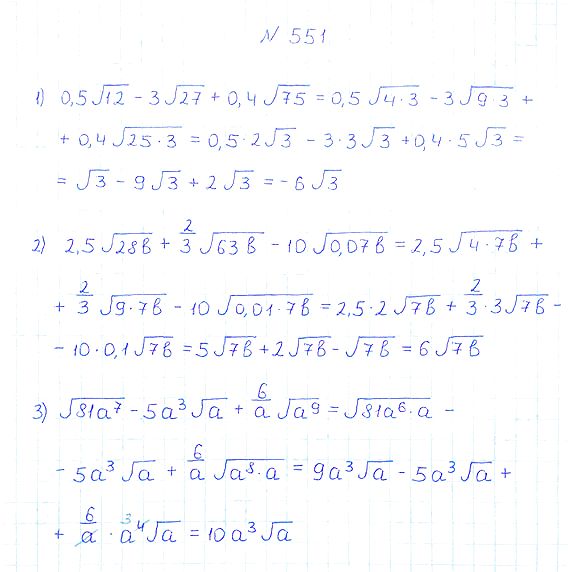 № 551
1) 0,5√12 − 3√27 + 0,4√75 = 0,5√(4·3) − 3√(9·3) +
+ 0,4√(25·3) = 0,5·2√3 − 3·3√3 + 0,4·5√3 =
= √3 − 9√3 + 2√3 = −6√3
2) 2,5√(28в) + 2/3 √(63в) − 10√(0,07в) = 2,5√(4·7в) +
+ 2/3 √(9·7в) − 10√(0,01·7в) = 2,5·2√(7в) + 2/3·3√(7в) −
− 10·0,1√(7в) = 5√(7в) + 2√(7в) − √(7в) = 6√(7в)
3) √(81a⁷) − 5a³√a + 6/a √(a⁹) = √(81a⁶·a) −
− 5a³√a + 6/a √(a⁸·a) = 9a³√a − 5a³√a +
+ 6/a · a⁴√a = 10a³√a